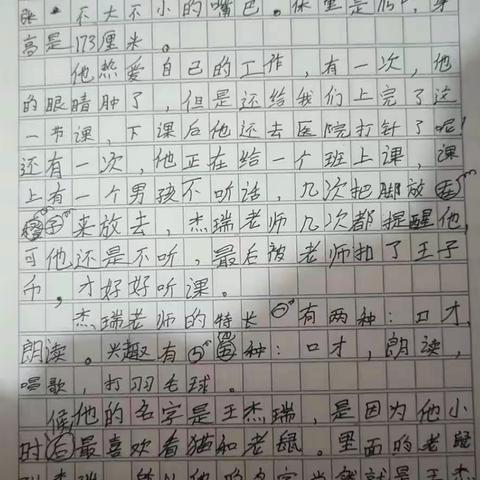 不大不小的嘴巴。体重是115，身
高是173厘米。
他热爱自己的工作，有一次，他
的眼睛肿了，但是还给我们上完了这
一节课，下课后他还去医院打针了呢！
还有一次，他正在给一个班上课，课
上有一个男孩不听话，几次把脚放在
来放去，杰瑞老师几次都提醒他，
可他还是不听，最后被老师扣了王子
币，才好好听课。
杰瑞老师的特长有两种：口才，
朗读。兴趣有5种：口才，朗读，
唱歌，打羽毛球。
他的名字是王杰瑞，是因为他小
时候最喜欢看猫和老鼠。里面的老鼠